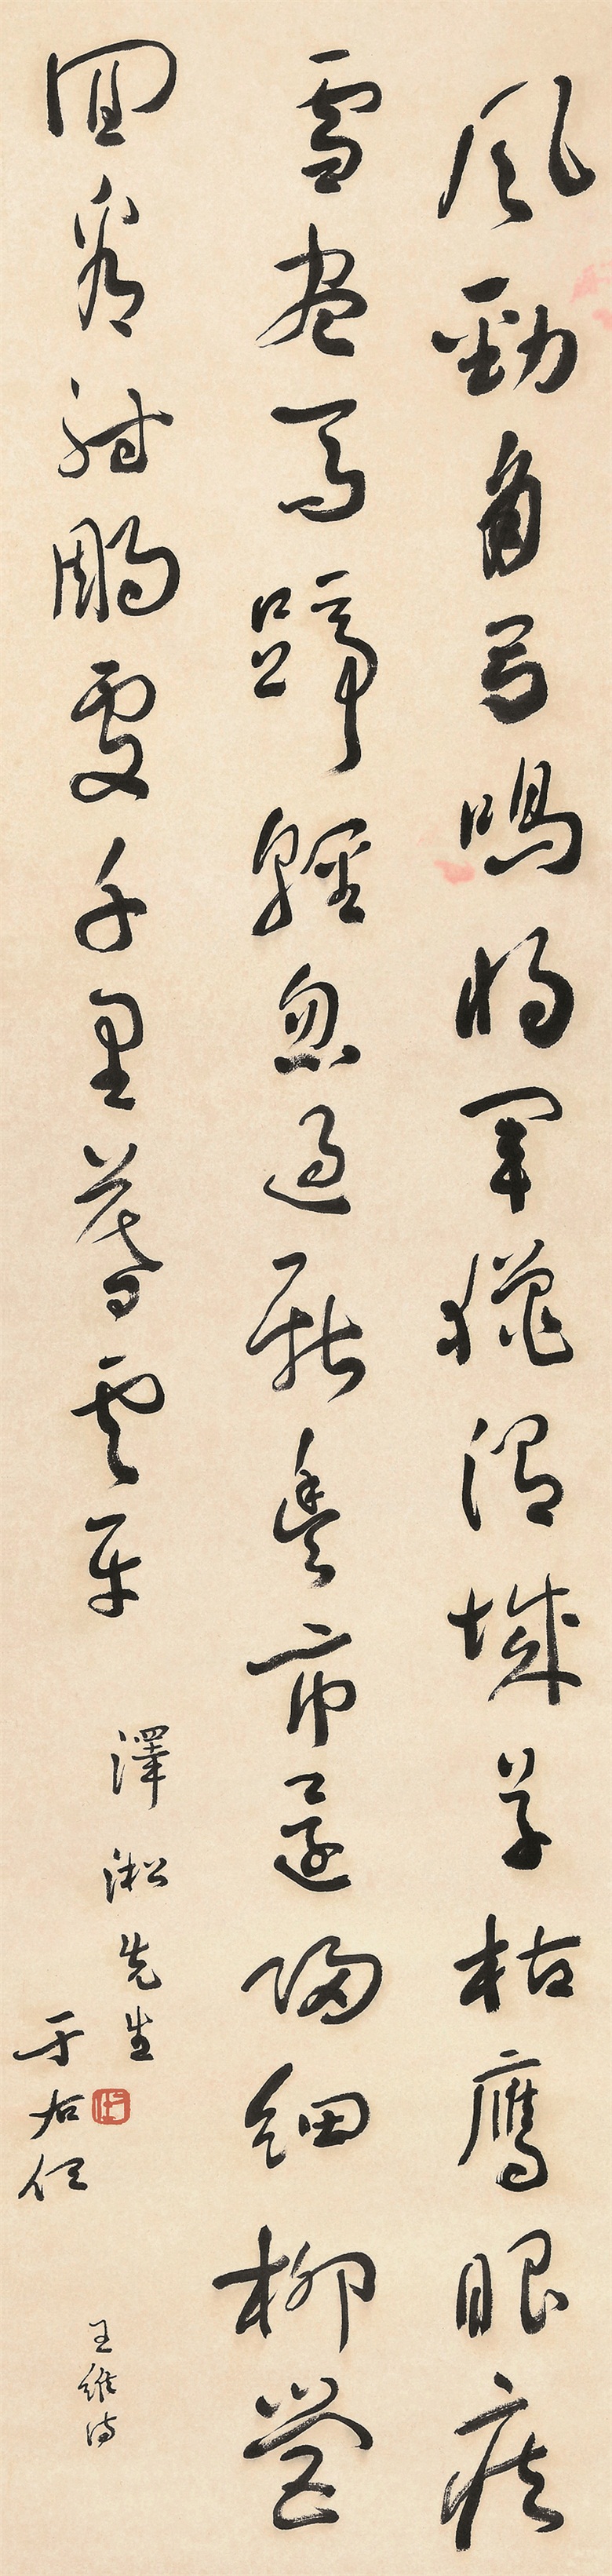 風勁角弓鳴將軍獵渭城草枯鷹眼疾
雪盡馬蹄輕忽過新豐市還歸細柳營
回看射鵰處千里暮雲平
澤淞先生
于右任
王維詩